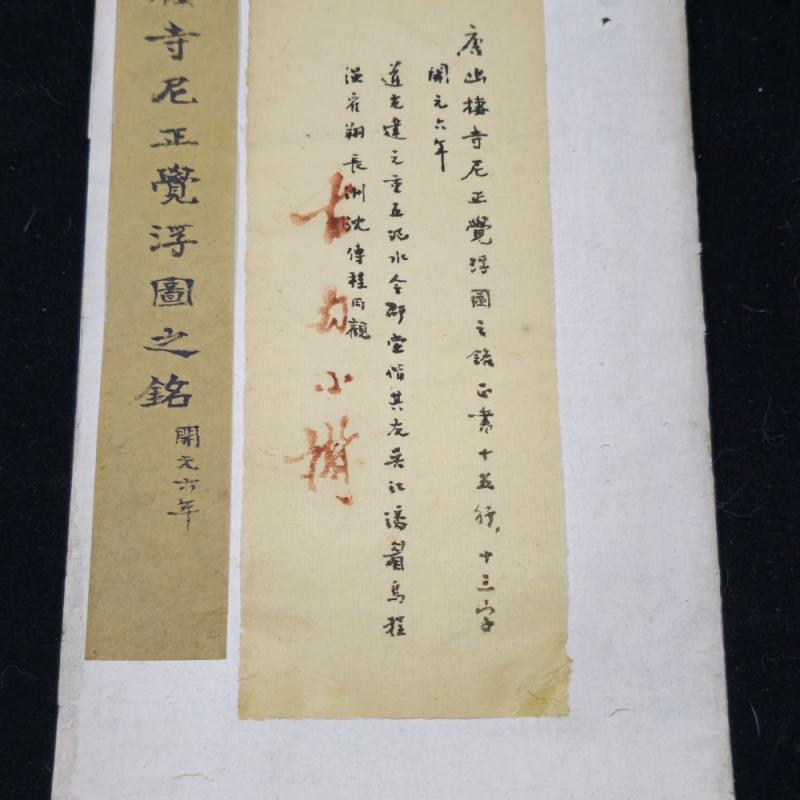 唐幽棲寺尼正覺浮圖之銘正書十五行,十三字
開元六年
道光建元重五汜水令邵堂偕其友吳江潘眉烏程
翔長洲沈傳桂同觀
小
寺尼正覺浮圖之銘
開元六年